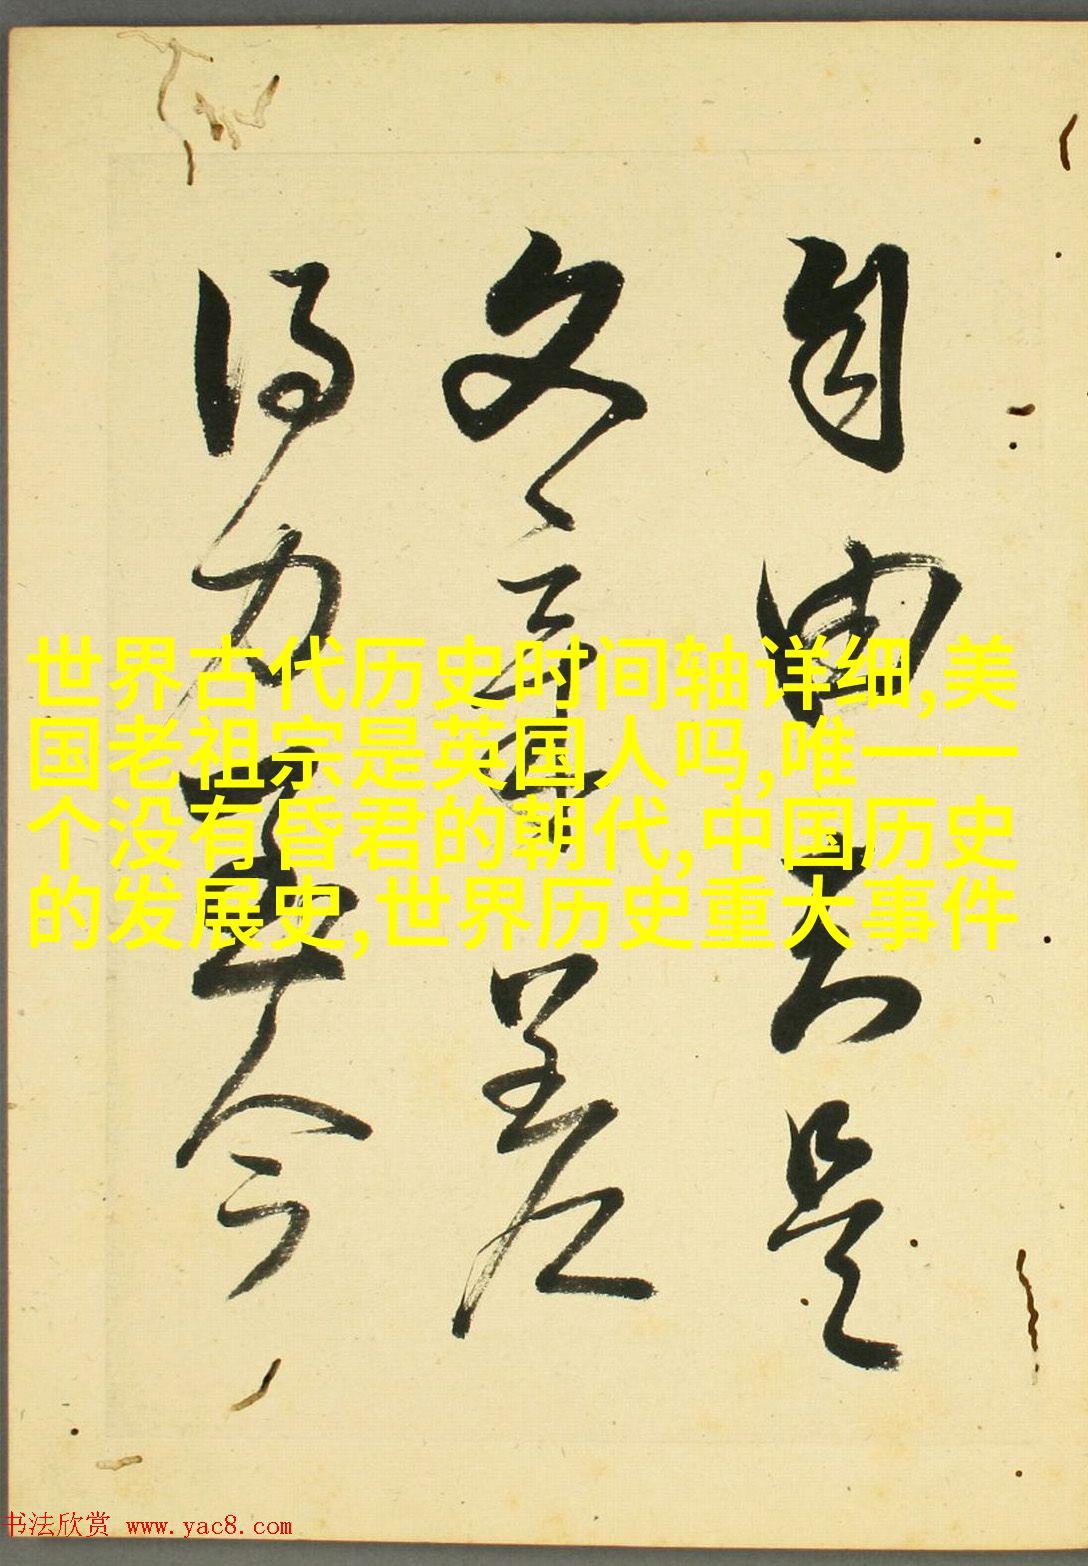 自由是
文章
得力今
世界古代历史时间轴详细,美
国老祖宗是英国人吗,唯一一
个没有昏君的朝代,中国历史
的发展史,世界历史重大事件
书法欣赏 www.yac8.com